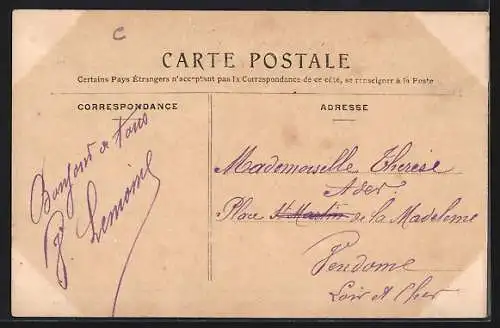 C
CARTE POSTALE
Certains Pays Étrangers n'acceptant pas la Correspondance de ce côté, se renseigner à la Poste
CORRESPONDANCE
Bonjour a Tous
Lemoine
ADRESSE
Mademoiselle Therese
Ader
Place St Martin de la Madeleine
Vendome
Loir et Cher